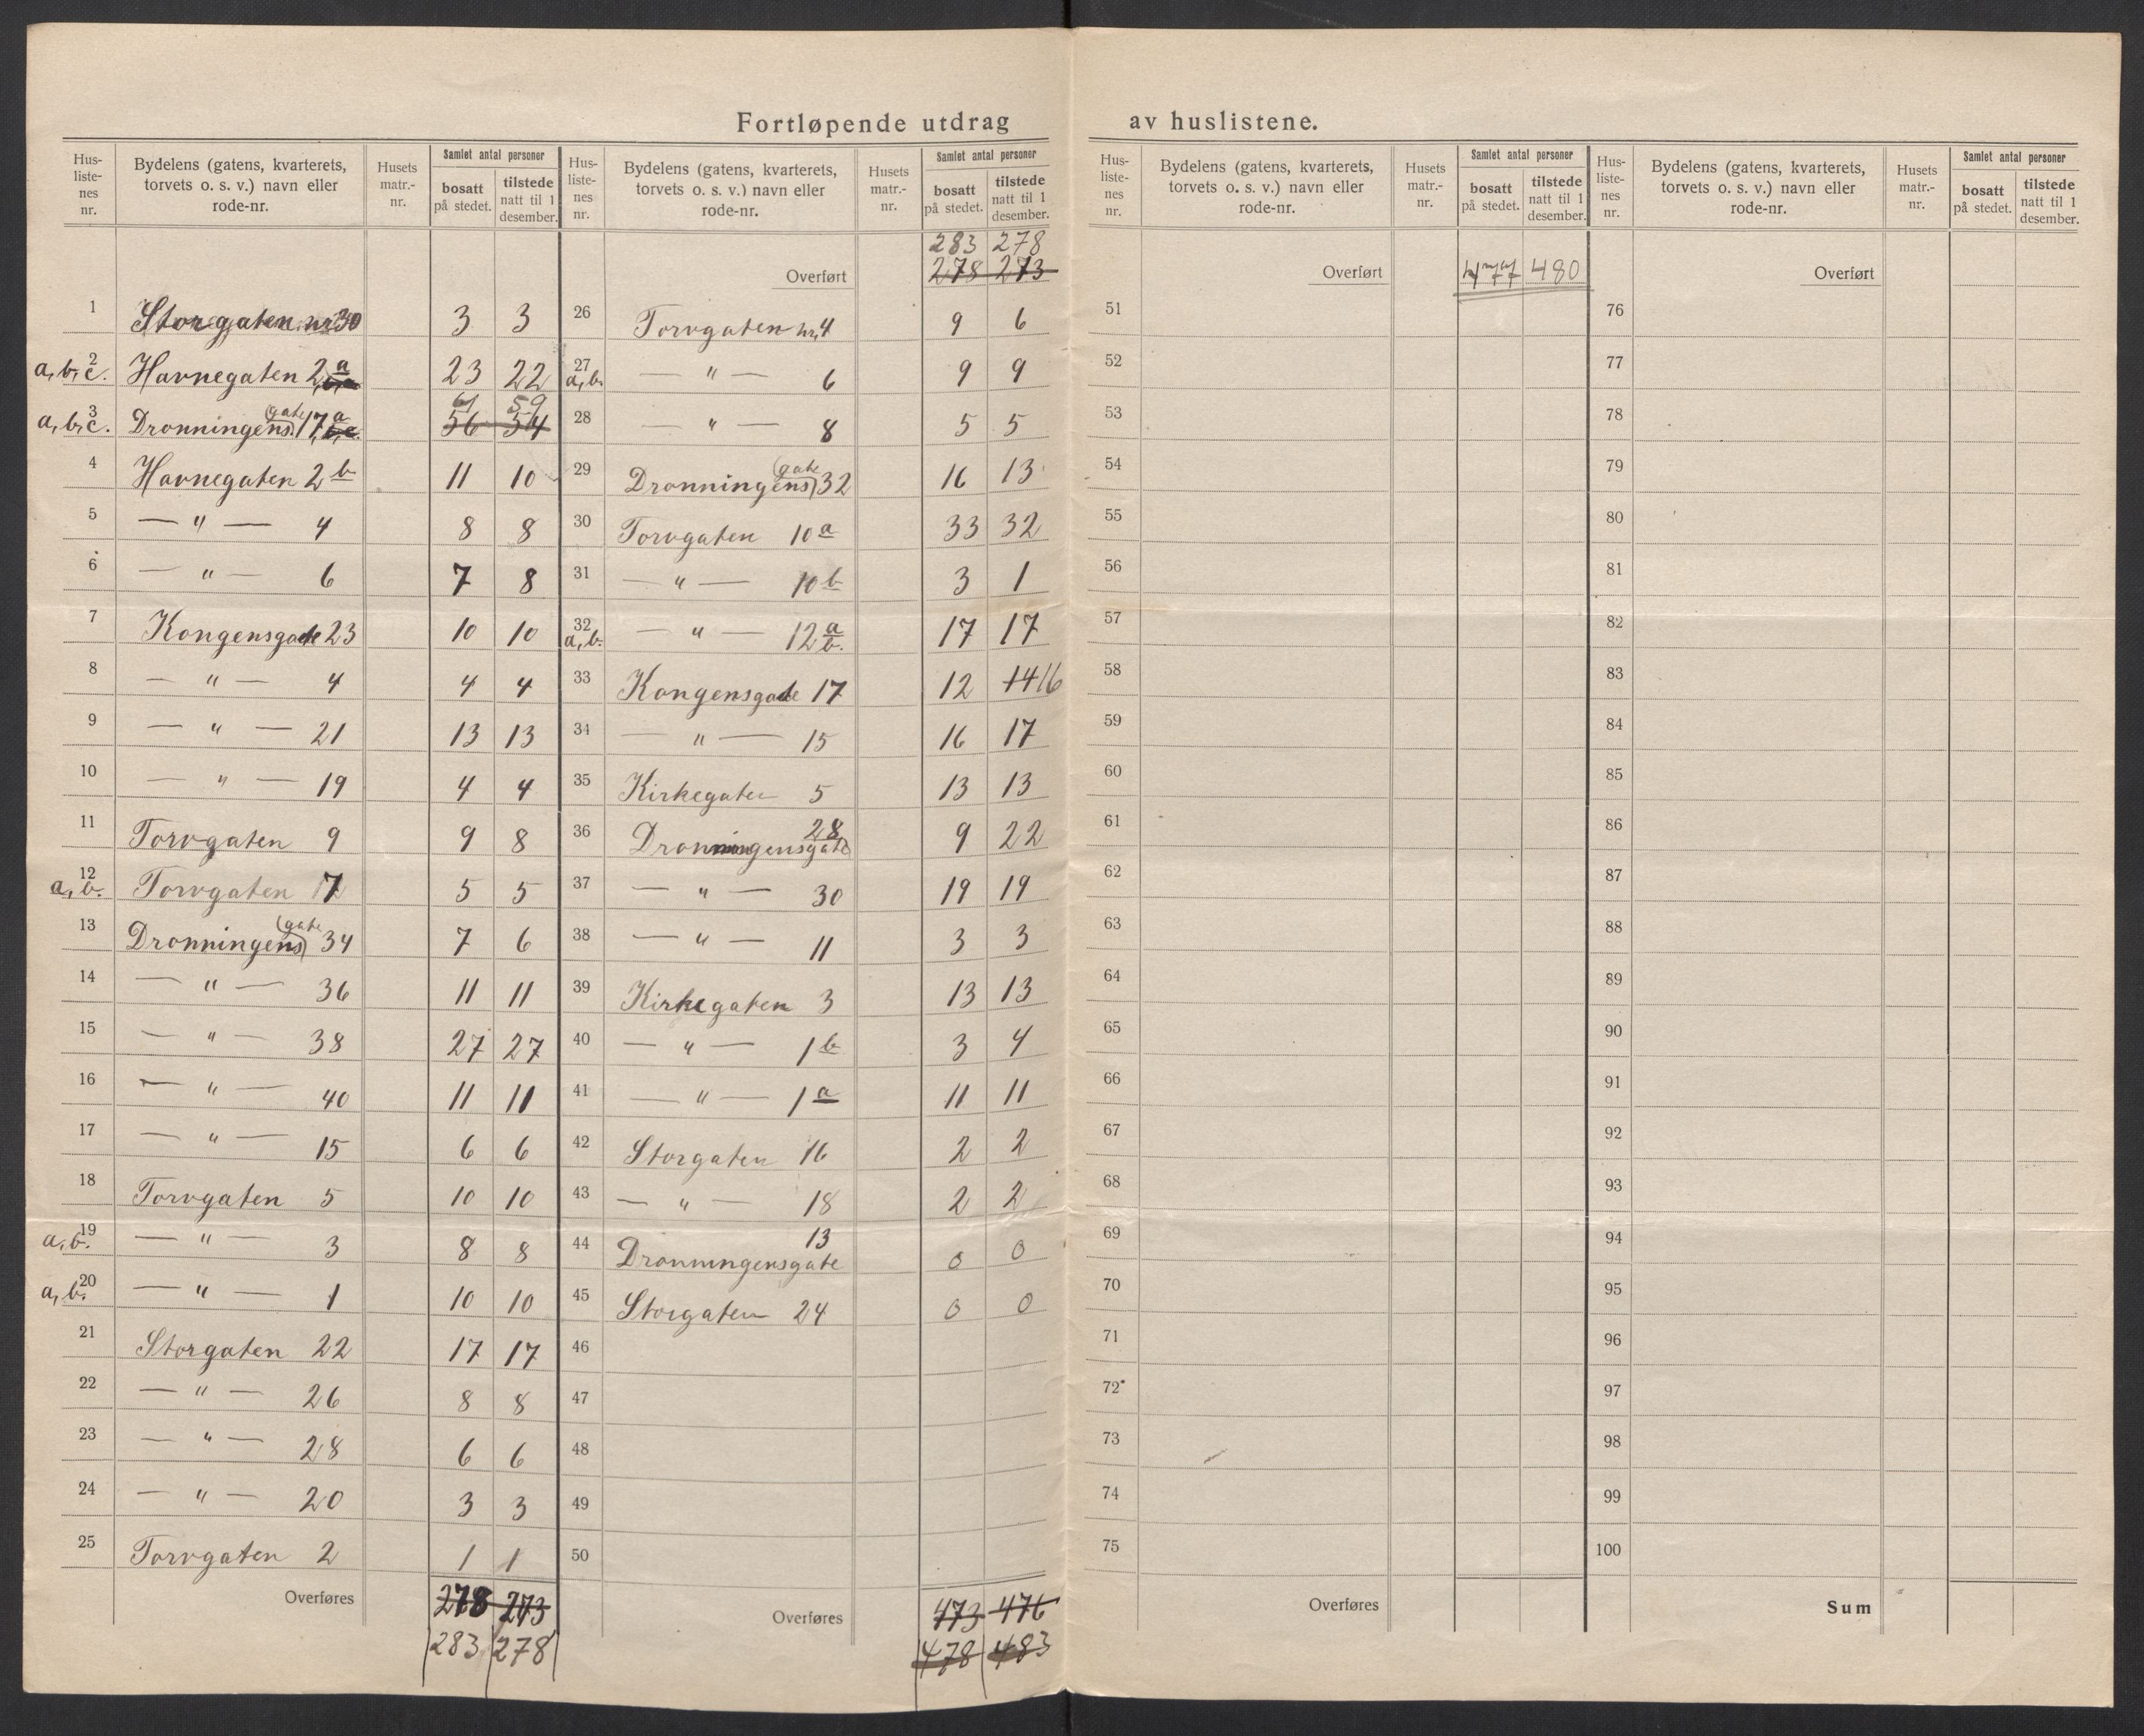 Fortløpende utdrag av huslistene.
Hus-listenes nr. Bydelens (gatens, kvarterets, torvets o. s. v.) navn eller rode-nr. Husets matr.-nr. Samlet antal personer bosatt på stedet. tilstede natt til 1 desember.
1 Storgaten nr 30 3 3
a, b, c. 2 Havnegaten 2 a 23 22
a, b, c. 3 Dronningens gate 17 a 61 59 56 54
4 Havnegaten 2 b 11 10
5 — " — 4 8 8
6 — " — 6 7 8
7 Kongensgade 23 10 10
8 — " — 4 4 4
9 — " — 21 13 13
10 — " — 19 4 4
11 Torvgaten 9 9 8
a, b. 12 Torvgaten 7 5 5
13 Dronningens gate 34 7 6
14 — " — 36 11 11
15 — " — 38 27 27
16 — " — 40 11 11
17 — " — 15 6 6
18 Torvgaten 5 10 10
a, b. 19 — " — 3 8 8
a, b. 20 — " — 1 10 10
21 Storgaten 22 17 17
22 — " — 26 8 8
23 — " — 28 6 6
24 — " — 20 3 3
25 Torvgaten 2 1 1
Overføres 278 273
283 278
Hus-listenes nr. Bydelens (gatens, kvarterets, torvets o. s. v.) navn eller rode-nr. Husets matr.-nr. Samlet antal personer bosatt på stedet. tilstede natt til 1 desember.
283 278
Overført 278 273
26 Torvgaten nr. 4 9 6
27 a, b. — " — 6 9 9
28 — " — 8 5 5
29 Dronningens gate 32 16 13
30 Torvgaten 10 a 33 32
31 — " — 10 b 3 1
32 a, b. — " — 12 a b. 17 17
33 Kongensgade 17 12 14 16
34 — " — 15 16 17
35 Kirkegaten 5 13 13
36 Dronningensgate 28 9 22
37 — " — 30 19 19
38 — " — 11 3 3
39 Kirkegaten 3 13 13
40 — " — 1 b 3 4
41 — " — 1 a 11 11
42 Storgaten 16 2 2
43 — " — 18 2 2
44 Dronningensgate 13 0 0
45 Storgaten 24 0 0
46
47
48
49
50
Overføres 473 476
478 483
Hus-listenes nr. Bydelens (gatens, kvarterets, torvets o. s. v.) navn eller rode-nr. Husets matr.-nr. Samlet antal personer bosatt på stedet. tilstede natt til 1 desember.
Overført 477 480
51
52
53
54
55
56
57
58
59
60
61
62
63
64
65
66
67
68
69
70
71
72
73
74
75
Overføres
Hus-listenes nr. Bydelens (gatens, kvarterets, torvets o. s. v.) navn eller rode-nr. Husets matr.-nr. Samlet antal personer bosatt på stedet. tilstede natt til 1 desember.
Overført
76
77
78
79
80
81
82
83
84
85
86
87
88
89
90
91
92
93
94
95
96
97
98
99
100
Sum